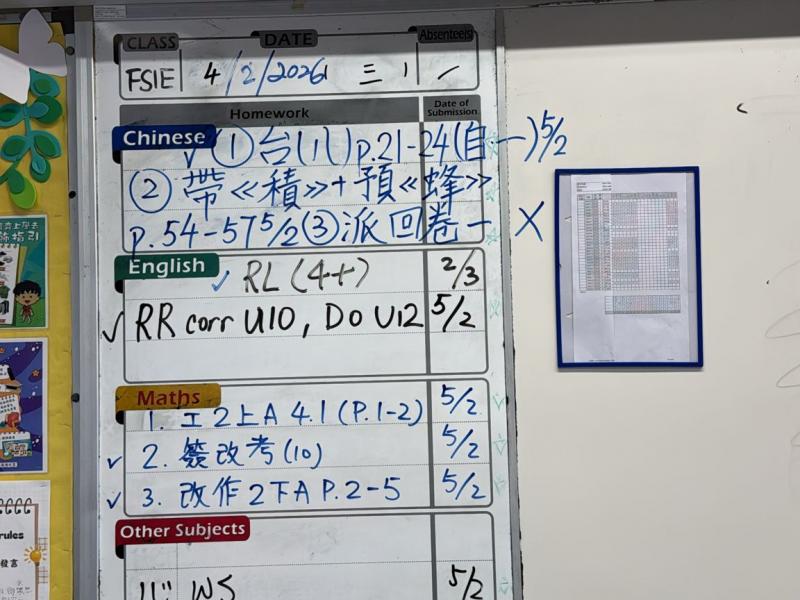 CLASS DATE Absentee(s)
FSIE 4/2/2026 三
Homework Date of Submission
Chinese ✓ ① 台(八)p.21-24(自一) 5/2
② 帶《積》+預《蜂》
p.54-57 5/2 ③ 派回卷一 X
English ✓ RL (4+) 2/3
✓ RR corr U10, Do U12 5/2
Maths
1. 工2上A 4.1 (P.1-2) 5/2
✓ 2. 簽改考(10) 5/2
✓ 3. 改作2下A P.2-5 5/2
Other Subjects
WS 5/2
指引
rules
發言